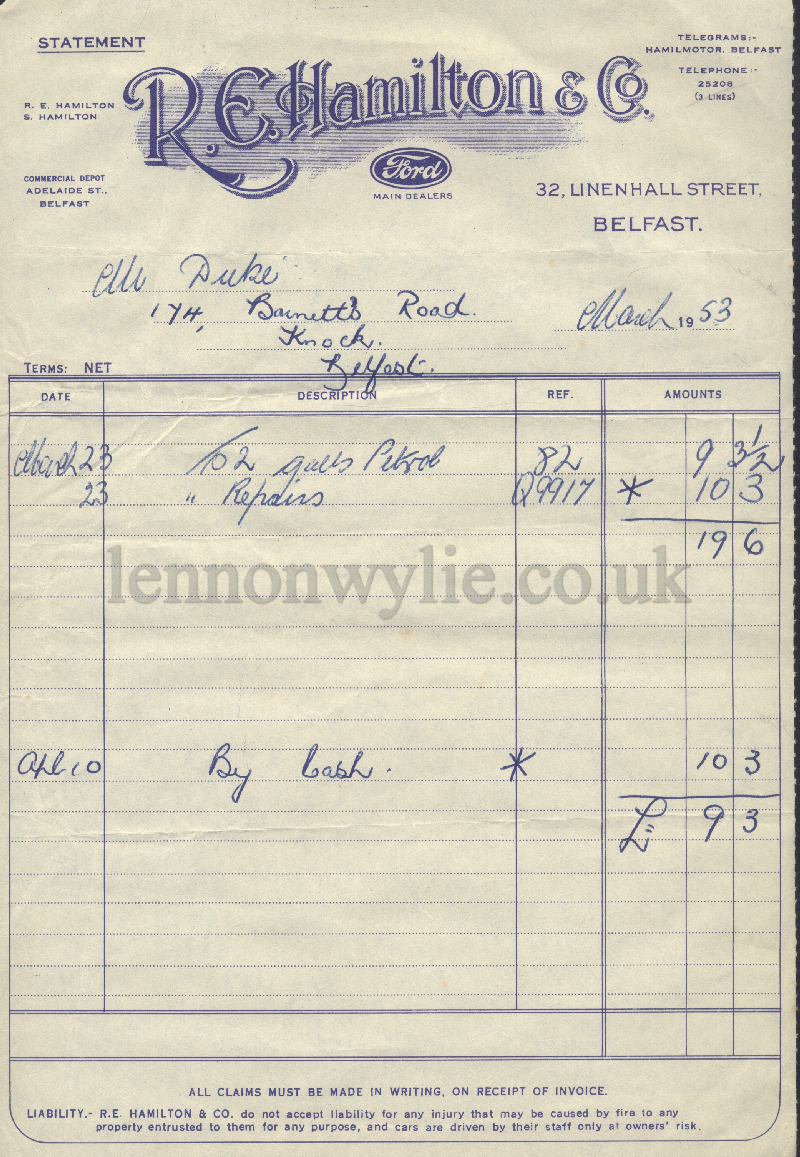 STATEMENT
TELEGRAMS:-
HAMILMOTOR, BELFAST
TELEPHONE:-
25208
(3 LINES)
R. E. HAMILTON
S. HAMILTON
R.E. Hamilton & Co.
COMMERCIAL DEPOT
ADELAIDE ST.,
BELFAST
Ford
MAIN DEALERS
32, LINENHALL STREET,
BELFAST.
Mr Duke
174, Barnett's Road.
Knock.
Belfast.
March 1953
TERMS: NET
DATE DESCRIPTION REF. AMOUNTS
March 23 To 2 galls Petrol 82 9 3½
23 " Repairs Q9917 * 10 3
19 6
lennonwylie.co.uk
Apl. 10 By Cash. * 10 3
£" 9 3
ALL CLAIMS MUST BE MADE IN WRITING, ON RECEIPT OF INVOICE.
LIABILITY.- R.E. HAMILTON & CO. do not accept liability for any injury that may be caused by fire to any
property entrusted to them for any purpose, and cars are driven by their staff only at owners' risk.